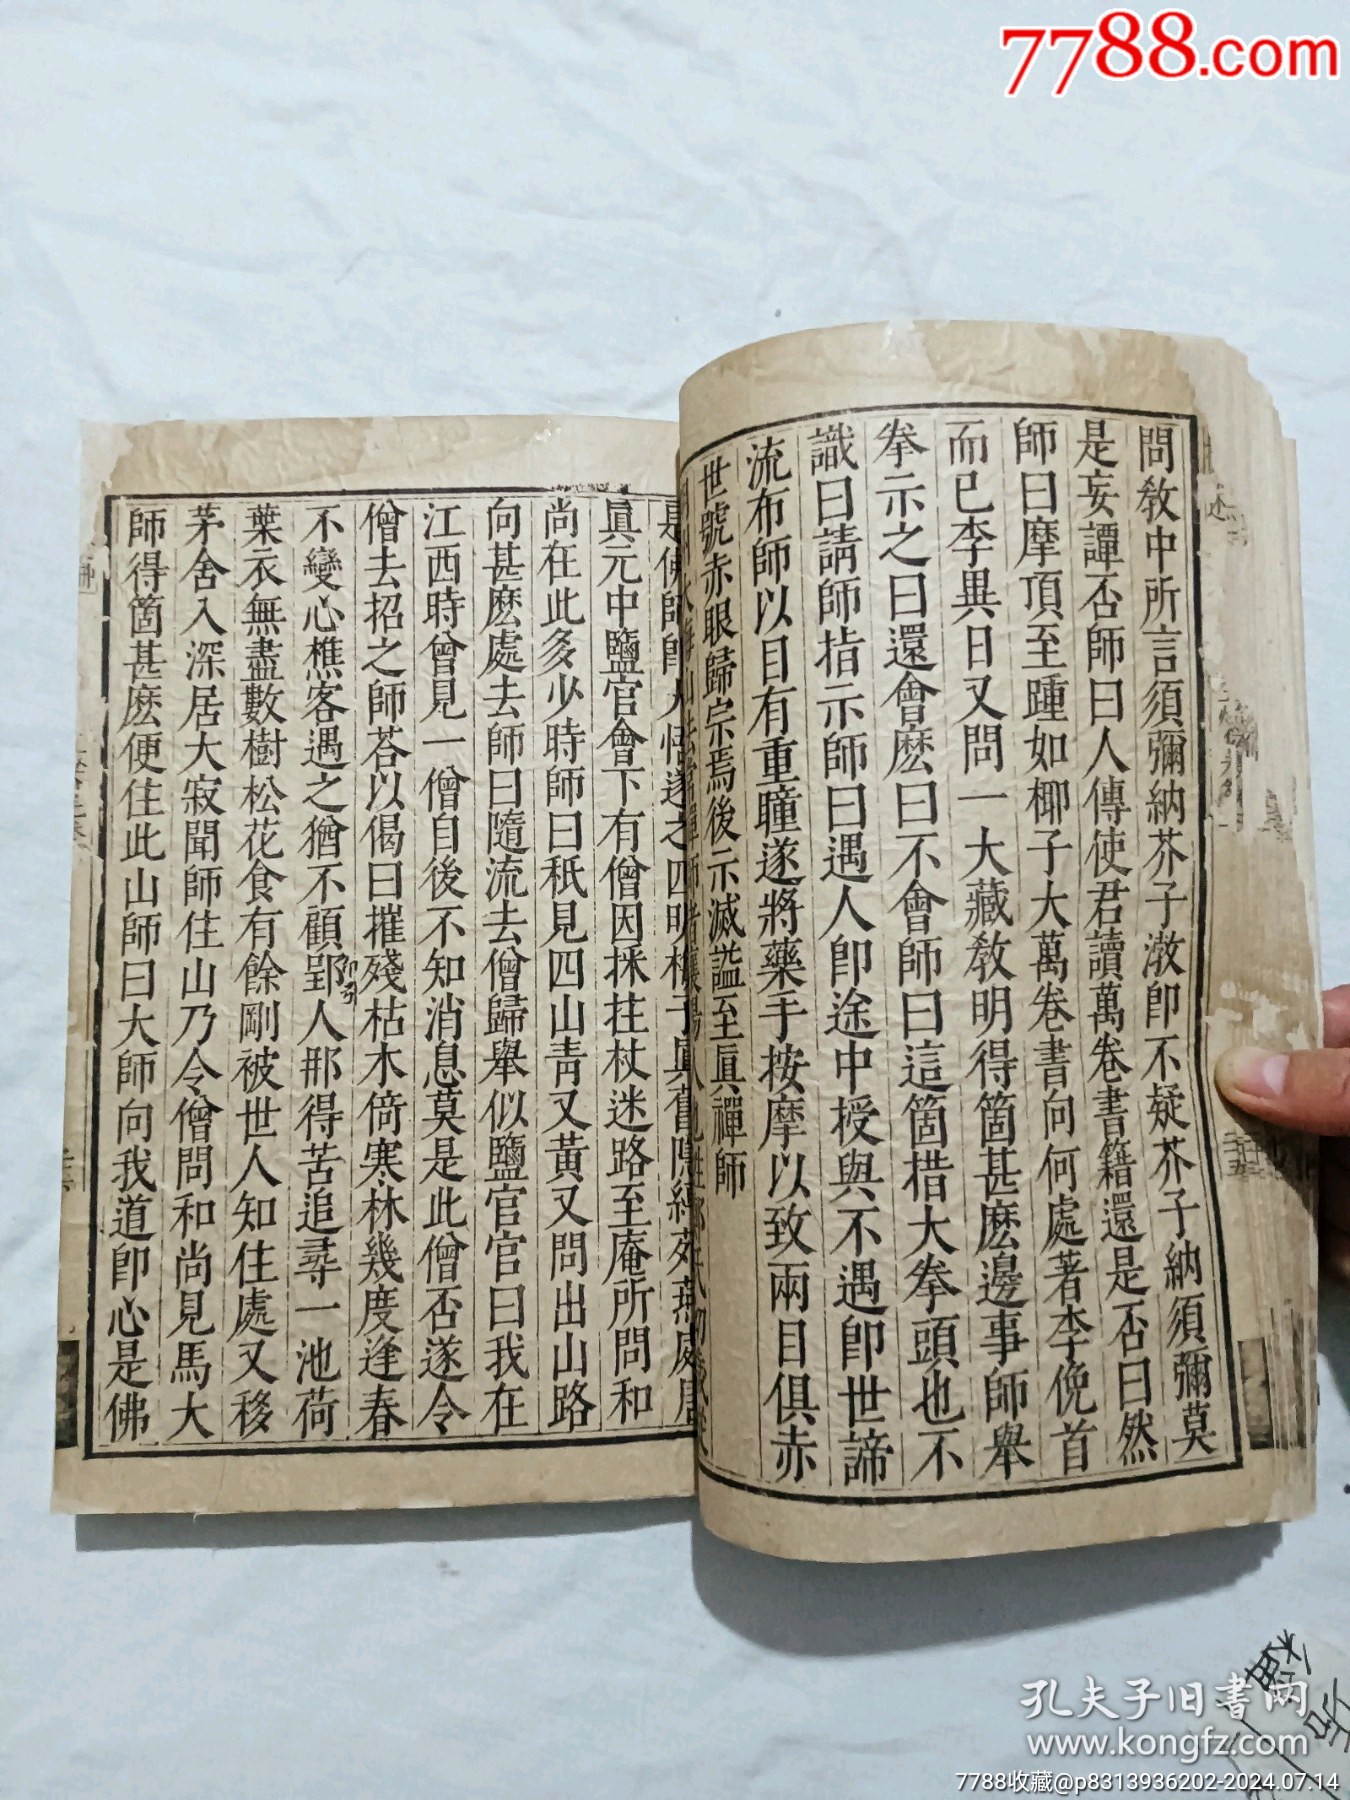 7788.com
問教中所言須彌納芥子漵卽不疑芥子納須彌莫
是妄譚否師曰人傳使君讀萬卷書籍還是否曰然
師曰摩頂至踵如椰子大萬卷書向何處著李俛首
而已李異日又問一大藏教明得箇甚麽邊事師舉
拳示之曰還會麽曰不會師曰這箇措大拳頭也不
識曰請師指示師曰遇人卽途中授與不遇卽世諦
流布師以目有重瞳遂將藥手按摩以致兩目俱赤
世號赤眼歸宗焉後示滅謚至眞禪師
眞元中鹽官會下有僧因採拄杖迷路至庵所問和
尚在此多少時師曰秖見四山靑又黃又問出山路
向甚麽處去師曰隨流去僧歸舉似鹽官官曰我在
江西時曾見一僧自後不知消息莫是此僧否遂令
僧去招之師荅以偈曰摧殘枯木倚寒林幾度逢春
不變心樵客遇之猶不顧郢人那得苦追尋一池荷
葉衣無盡數樹松花食有餘剛被世人知住處又移
茅舍入深居大寂聞師住山乃令僧問和尚見馬大
師得箇甚麽便住此山師曰大師向我道卽心是佛
孔夫子旧書网
www.kongfz.com
7788收藏@p8313936202-2024.07.14